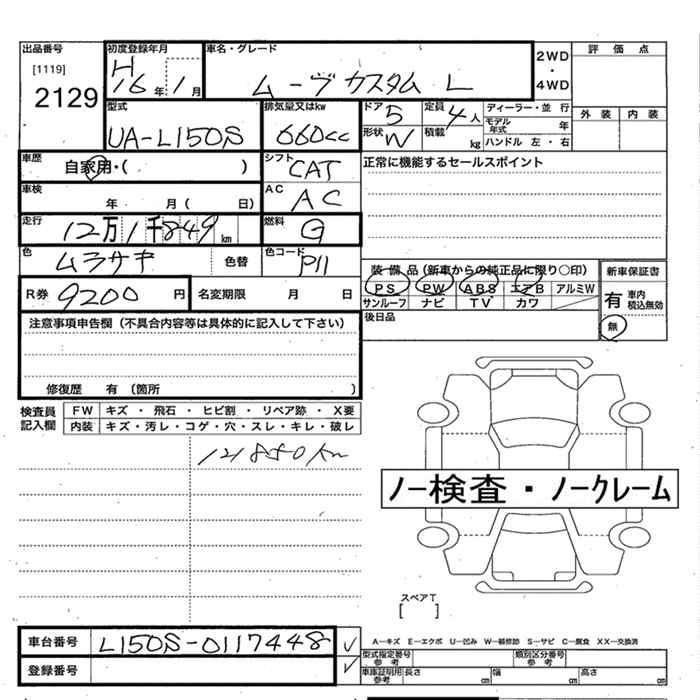 出品番号 初度登録年月 車名・グレード 2WD・4WD 評価点
[1119] H16年1月 ムーヴカスタム L
2129 外装 内装
型式 排気量又はkw ドア 5 定員 4人 ディーラー・並行
UA-L150S 660cc 形状 W 積載 kg モデル年式 年
ハンドル 左・右
車歴 自家用・( ) シフト CAT 正常に機能するセールスポイント
車検 年 月( 日) AC AC
走行 12万1千849km 燃料 G
色 ムラサキ 色替 色コード P11 装備品(新車からの純正品に限り○印) 新車保証書
R券 9200円 名変期限 月 日 PS PW ABS エアB アルミW 有 車内積込無効
サンルーフ ナビ TV カワ 無
注意事項申告欄(不具合内容等は具体的に記入して下さい) 後日品
修復歴 有 (箇所 )
検査員記入欄 FW キズ・飛石・ヒビ割・リペア跡・X要
内装 キズ・汚レ・コゲ・穴・スレ・キレ・破レ
121850km
ノー検査・ノークレーム
スペアT
[ ]
車台番号 L150S-0117448 A-キズ E-エクボ U-凹み W-補修跡 S-サビ C-腐食 XX-交換済
登録番号 型式指定番号 参考 類別区分番号 参考
車庫証明用 参考 長さ cm 幅 cm 高さ cm